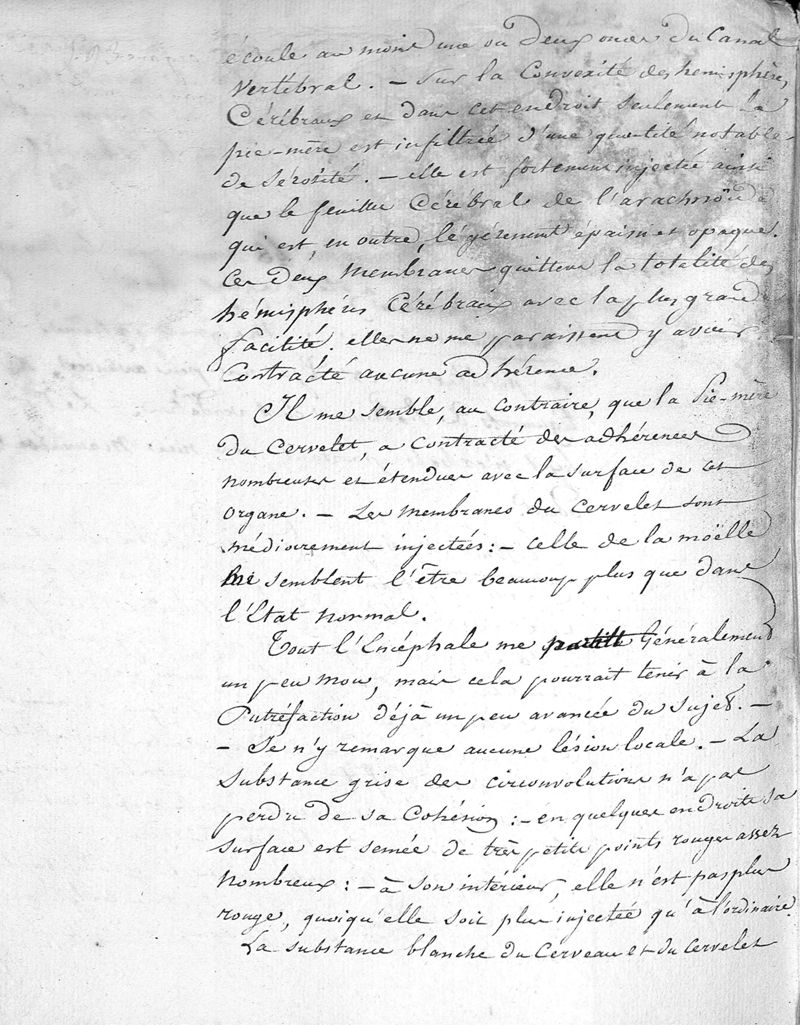 écoule au moins une ou deux onces du Canal
Vertébral. – Sur la Convexité des hemisphères
Cérébraux et dans cet endroit seulement la
pie-mère est infiltrée d'une quantité notable
de sérosité. – elle est fortement injectée ainsi
que le feuillet Cérébral de l'arachnoïde
qui est, en outre, légérement épaissi et opaque.
Ces deux membranes quittent la totalité des
hémisphéres Cérébraux avec la plus grande
facilité. elles ne me paraissent y avoir
Contracté aucune adhérence.
Il me semble, au contraire, que la Pie-mère
du Cervelet, a Contracté des adhérences
nombreuses et étendues avec la surface de cet
organe. – Les membranes du Cervelet sont
médiocrement injectées : – celle de la moëlle
me semblent l'être beaucoup plus que dans
l'Etat normal.
Tout l'Encéphale me Généralement
un peu mou, mais cela pourrait tenir à la
Putréfaction déjà un peu avancée du Sujet. –
– Je n'y remarque aucune lésion locale. – La
Substance grise des circonvolutions n'a pas
perdu de sa Cohésion : – en quelques endroits sa
surface est semée de très petits points rouges assez
nombreux : – à son intérieur, elle n'est pas plus
rouge, quoiqu'elle soit plus injectée qu'à l'ordinaire.
La substance blanche du Cerveau et du Cervelet